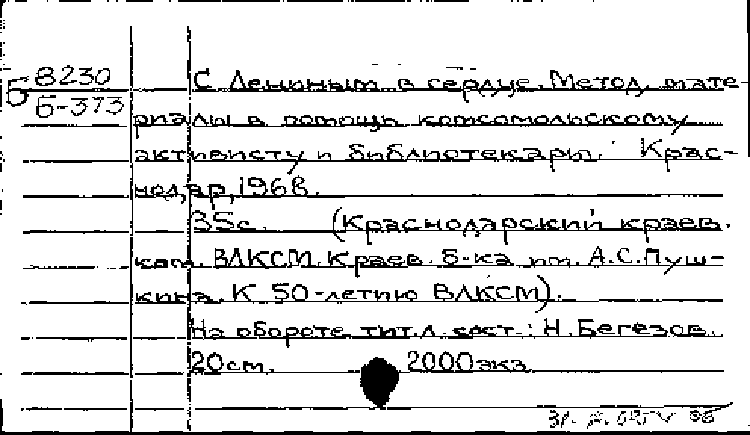 Б 8230
Б-373
С Лениным в сердце. Метод. мате-
риалы в помощь комсомольскому
активисту и библиотекарю. Крас-
нодар, 1968.
35с. (Краснодарский краев.
ком. ВЛКСМ. Краев. б-ка им. А.С.Пуш-
кина. К 50-летию ВЛКСМ).
На обороте тит.л. сост.: Н.Бегезов.
20см. 2000экз.